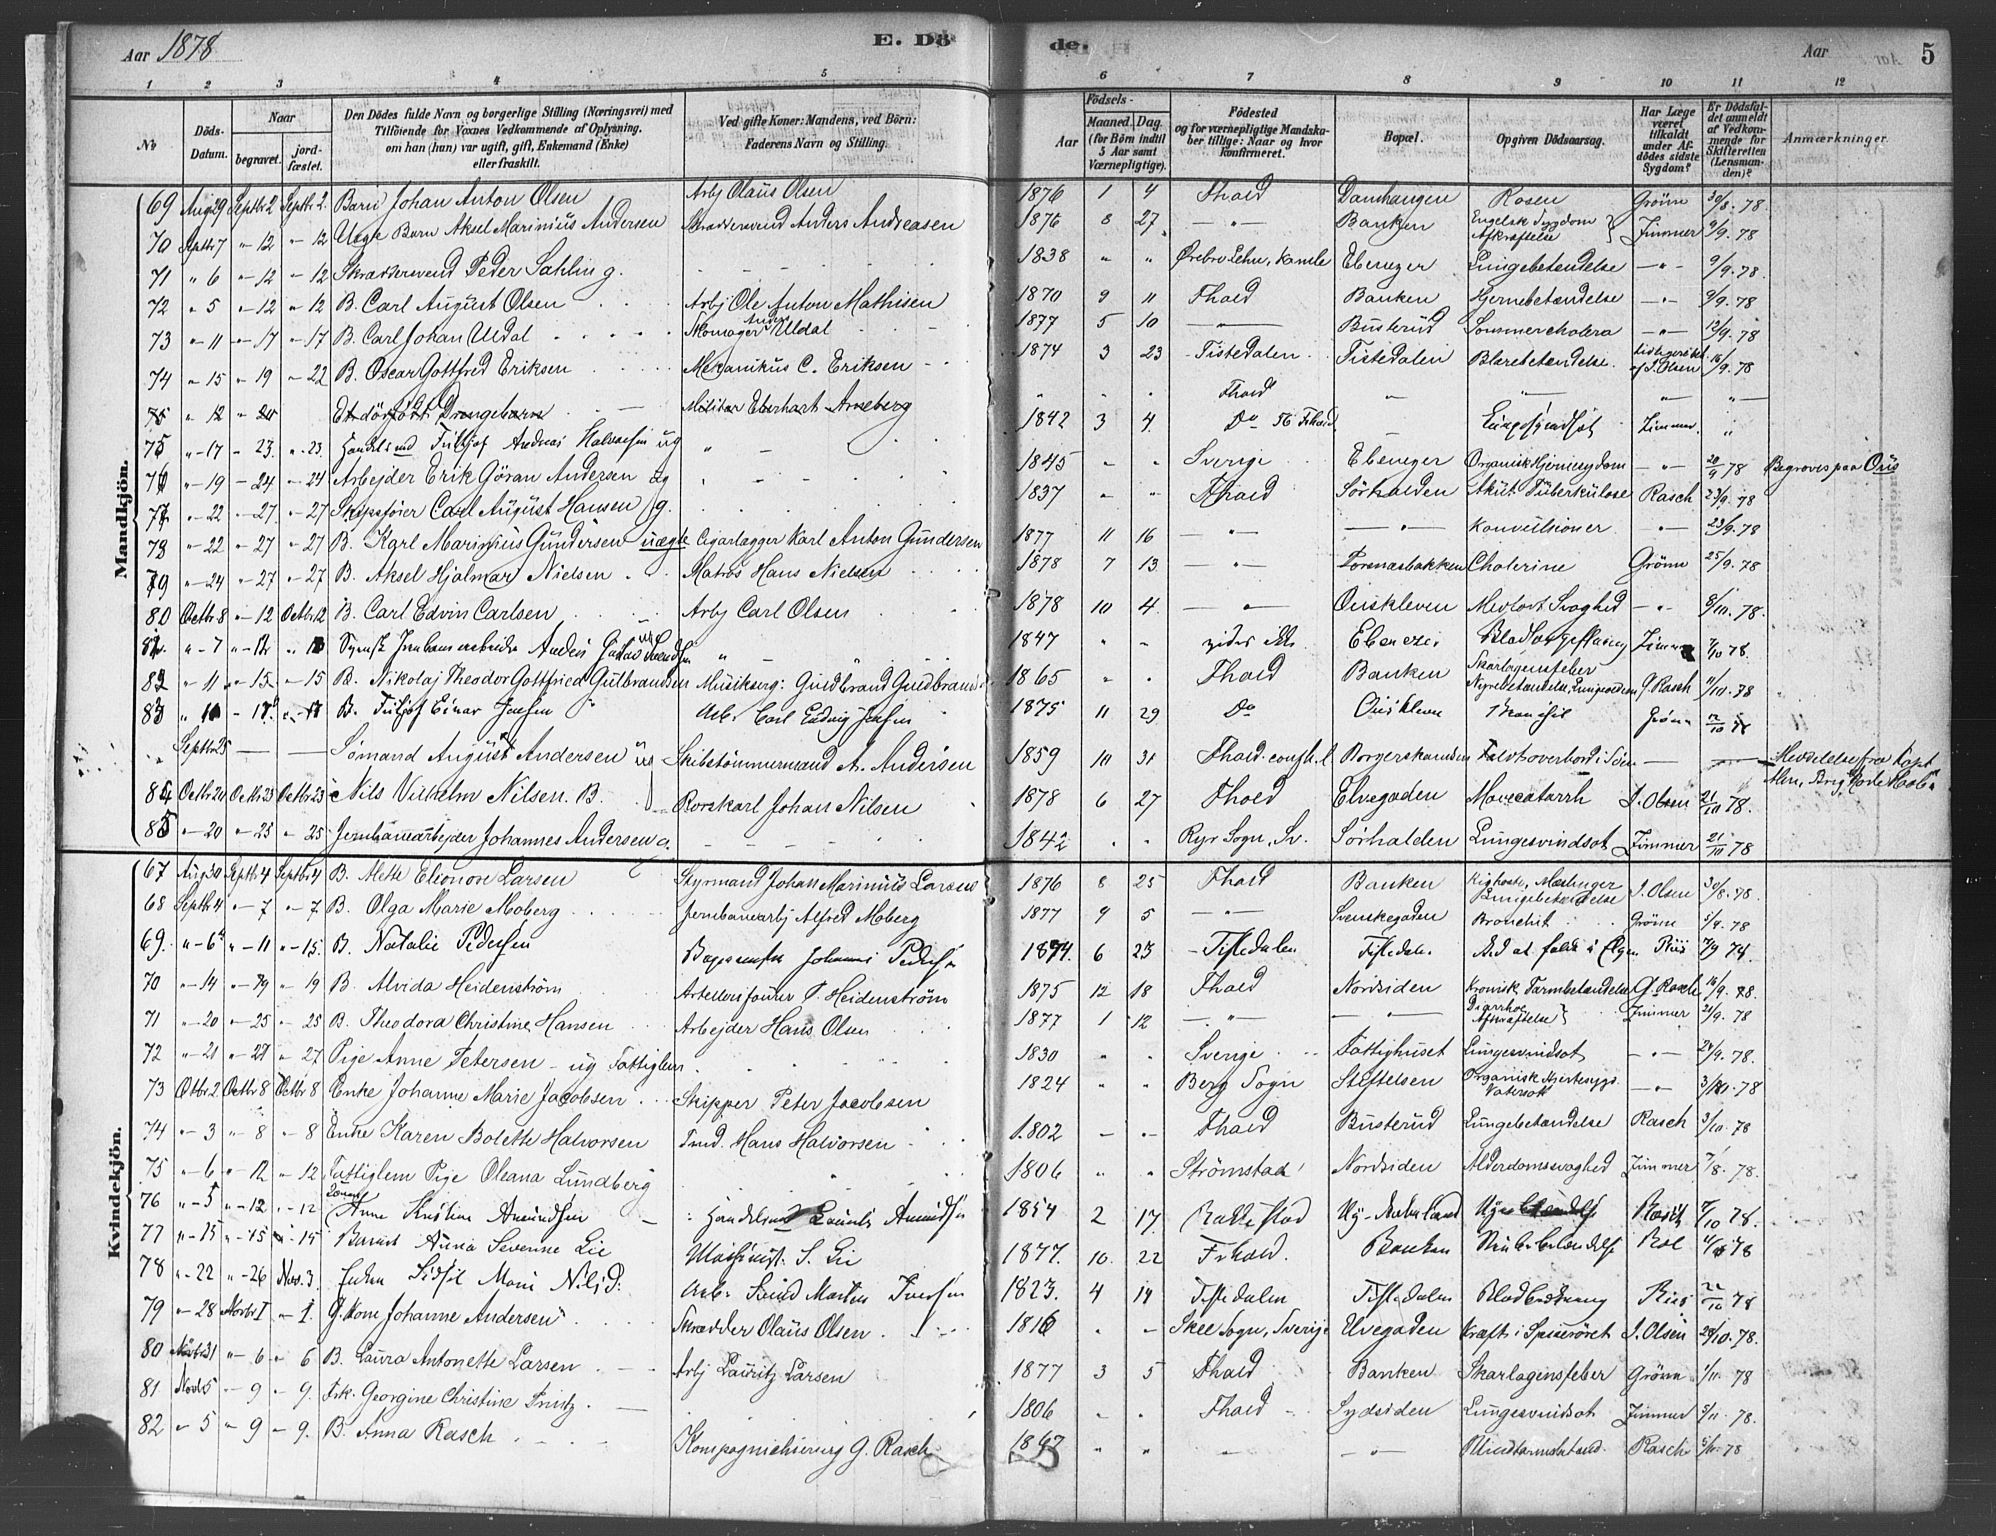 Aar 1878 E. Dö de. Aar 5
1 2 3 4 5 6 7 8 9 10 11 12
No Döds-Datum. Naar begravet. jord-fæstet. Den Dödes fulde Navn og borgerlige Stilling (Næringsvei) med Tilföiende for Voxnes Vedkommende af Oplysning, om han (hun) var ugift, gift, Enkemand (Enke) eller fraskilt. Ved gifte Koner: Mandens, ved Börn: Faderens Navn og Stilling. Födsels- Aar Maaned. Dag. (for Börn indtil 5 Aar samt Værnepligtige). Födested og for værnepligtige Mandskaber tillige: Naar og hvor konfirmeret. Bopæl. Opgiven Dödsaarsag. Har Læge været tilkaldt under Afdödes sidste Sygdom? Er Dödsfaldet anmeldt af Vedkommende for Skifteretten (Lensmanden)? Anmærkninger.
Mandkjön.
69 Aug 29 Septbr 2 Septbr 2. Barn Johan Anton Olsen Arbj Olaus Olsen 1876 1 4 Fhald Damhaugen Rosen Grönn 30/8. 78.
70 Septbr 7 " 12 " 12 Uægte Barn Aksel Marinius Andersen Skræddersvend Anders Andreasen 1876 8 27 — " — Banken Engelsk Sygdom Afkræftelse Zimmer 9/9. 78
71 " 6 " 12 " 12 Skræddersvend Peder Sahlin g. 1838 " " Örebro Lehn, Kumle Ebenezer Lungebetændelse — " — 9/9. 78.
72 " 5 " 12 " 12 B. Carl August Olsen Arbj Ole Anton Mathisen 1870 9 11 Fhald Banken Hjernebetændelse — " — 9/9. 78
73 " 11 " 17 " 17 B. Carl Johan Uldal Skomager Anders Uldal 1877 5 10 — " — Busterud Sommercholera — " — 12/9. 78
74 " 15 " 19 " 22 B. Oscar Gottfred Eriksen Mekanikus C. Eriksen 1874 3 23 Tistedalen Tistedalen Blærebetændelse. af J. Olsen 16/9. 78
75 " 12 " 20 Et dödfödt Drengebarn Militær Eberhart Arneberg " " " Fhald " " " "
75 " 17 " 23. " 23. Handelsmd Fritjof Andreas Halvorsen ug " 1842 3 4. Do 56 Frhald Lungesvindsot Zimmer. "
76 " 19 " 24 " 24 Arbejder Erik Göran Andersen ug 1845 " " Sverige Ebenezer Organisk Hjernesygdom — " — 20/9 78 Begroves paa Öris
77 " 22 " 27. " 27 Skipsförer Carl August Hansen g. 1837 " " Fhald Sörhalden Akut Tuberkulose Rasch 23/9. 78
78 " 22 " 27 " 27 B. Karl Marinius Gundersen uægte Cigarlagger Karl Anton Gundersen 1877 11 16 — " — — " — Konvulsioner — " — 23/9. 78
79 " 24 " 27 " 27 B. Aksel Hjalmar Nielsen Matros Hans Nielsen 1878 7 13. — " — Torsnæsbakken Cholerine Grönn 25/9. 78
80 Octbr 8 " 12 Octbr 12 B. Carl Edvin Carlsen Arbj Carl Olsen 1878 10 4. — " — Öriskleven Medfödt Svaghed — " — 8/10. 78.
81 " 7 " 12 " 12 Svensk Jernbanearbeider Anders Gustav Svendsen ug " 1847 " " vides ikke Ebenezer Blodforgiftning Zimmer 7/10 78.
82 " 11 " 15 " 15 B. Nikolaj Theodor Gottfried Gulbrandsen Musikserg: Guldbrand Guldbrandsen 1865 " " Fhald Banken Skarlagensfeber Nyrebetændelse, Lungeoedem G. Rasch 11/10. 78
83 " " 17 " 17 B. Fritjof Einar Jensen Arb. Carl Ludvig Jensen 1875 11 29 Do Öriskleven Grönn 12/10 78
" Septbr 25 — — Sömand August Andersen ug Skibstömmermand A. Andersen 1859 10 31 Fhald. confh. l Borgerskansen Faldt overbord i Söen — Meddelelse fra Kapt
84 Octbr 20 Octbr 23 Octbr 23 Nils Vilhelm Nilsen. B. Rorskarl Johan Nilsen 1878 6 27 Fhald Elvegaden Mavecatarrh J. Olsen 21/10 78. Brig
85 " 20 " 25 " 25 Jernbanearbejder Johannes Andersen g. 1842 " " Ryr Sogn, Sv. Sörhalden Lungesvindsot Zimmer 21/10 78
Kvindekjön.
67 Aug 30 Septbr 4 Septbr 4 B. Mette Eleonore Larsen Styrmand Johan Marinius Larsen 1876 8 25 Fhald Banken Kighoste, Mæslinger Lungebetændelse J. Olsen 30/8. 78.
68 Septbr 4 " 7 " 7 B. Olga Marie Moberg Jernbanearbj Alfred Moberg 1877 9 5 — " — Svenskegaden Bronchit Grönn 5/9. 78
69. " 6 " 11 " 15. B. Natalie Pedersen Johannes Pedersen 1874. 6 23 Tistedalen Tistedalen Ved at falde i Elven Riis 7/9 78.
70 " 14 " 19 " 19 B. Alvida Heidenström Artellerifourer P. Heidenström 1875 12 18 Fhald Nordsiden Kronisk Tarmbetændelse G. Rasch 16/9. 78.
71 " 20 " 25 " 25 B. Theodora Christine Hansen Arbejder Hans Olsen 1877 1 12 — " — — " — Diarrhoe Afkræftelse Zimmer 21/9. 78
72 " 21 " 27 " 27 Pige Anne Petersen - ug Fattiglem 1830 " " Sverige Fattighuset Lungesvindsot — " — 24/9. 78.
73 Octbr 2 Octbr 8 Octbr 8 Enke Johanne Marie Jacobsen Skipper Peter Jacobsen 1824 " " Berg Sogn Steffelsen Organisk Hjertesygd. Vatersot — " — 3/10. 78
74 " 3 " 8 " 8 Enke Karen Bolette Halvorsen Hans Halvorsen 1802 " " Fhald Busterud Lungebetændelse Rasch 3/10. 78
75 " 6 " 12 " 12 Fattiglem Pige Oleana Lundberg 1806 " " Strömstad Nordsiden Alderdomssvaghed Zimmer 78.
76 " 5 " 12 " 12 Anne Kristine Amundsen Handelsmd Laurits Amundsen 1854 2 17. Rakkestad Rasch 7/10 78.
77 " 15 " 15 " 15 Barnet Anna Severine Lie Maskinist. S. Lie 1877. 10. 22 Frhald. Banken 78
78 " 22 " 26 Nov. 3. Enken Marie Arb. Svend Martin Iversen 1823. 4 14 Tistedalen Tistedalen Riis 22/10 78
79 " 28 Novbr 1 " 1. G. Kone Johanne Andersen Skrædder Olaus Olsen 1816 " " Skee Sogn, Sverige Elvegaden Kræft i Spiserøret J. Olsen 28/10. 78.
80 31 " 6 " 6 B. Laura Antonette Larsen Arbj Lauritz Larsen 1877 3 5 Fhald Banken Skarlagensfeber Grönn 1/11. 78
81 Novbr 5 " 9 " 9. Frk. Georgine Christine 1806 " " Fhald Sydsiden Lungesvindsot Zimmer 5/11. 78.
82 " 5 " 9 " 9. B. Anna Rasch Kompagnichirurg G. Rasch " " — " — — " — Rasch 78